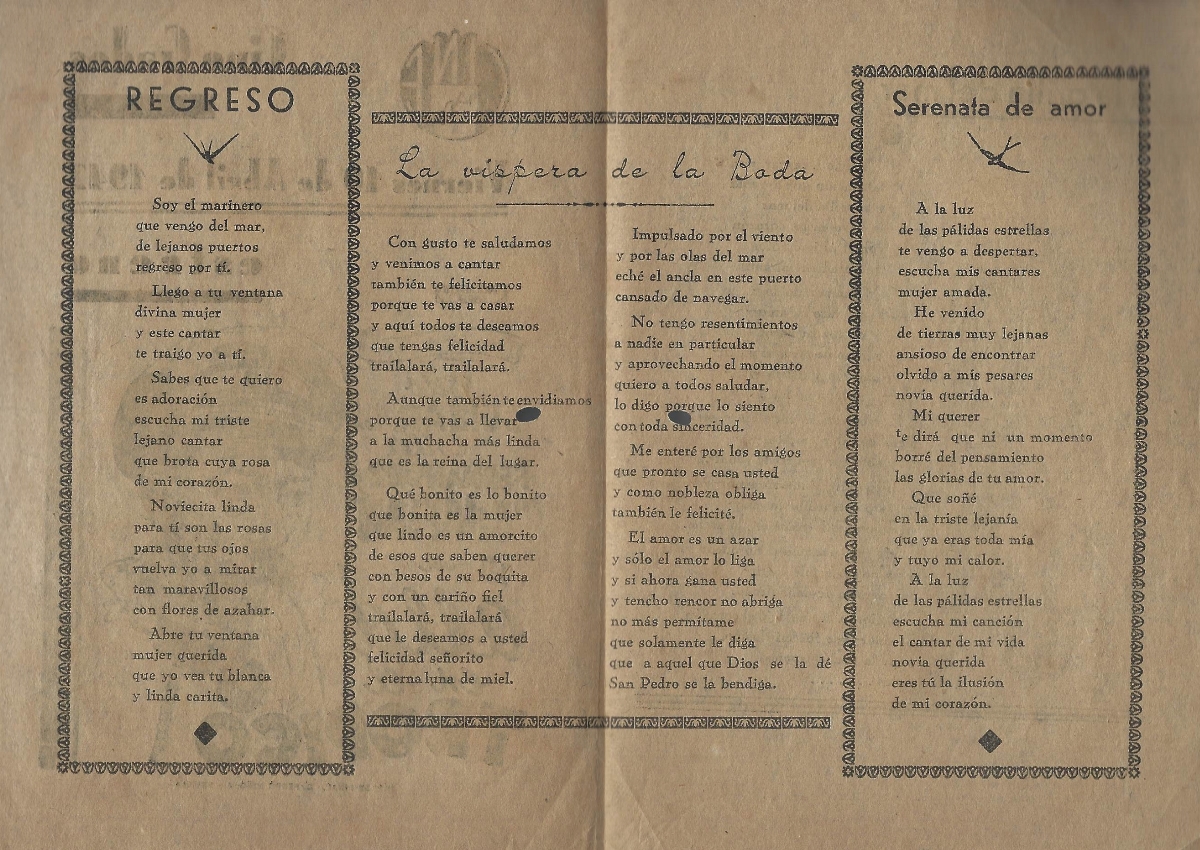 REGRESO
Soy el marinero
que vengo del mar,
de lejanos puertos
regreso por tí.
Llego a tu ventana
divina mujer
y este cantar
te traigo yo a tí.
Sabes que te quiero
es adoración
escucha mi triste
lejano cantar
que brota cuya rosa
de mi corazón.
Noviecita linda
para tí son las rosas
para que tus ojos
vuelva yo a mirar
tan maravillosos
con flores de azahar.
Abre tu ventana
mujer querida
que yo vea tu blanca
y linda carita.
La víspera de la Boda
Con gusto te saludamos
y venimos a cantar
también te felicitamos
porque te vas a casar
y aquí todos te deseamos
que tengas felicidad
trailalará, trailalará.
Aunque también te envidiamos
porque te vas a llevar
a la muchacha más linda
que es la reina del lugar.
Qué bonito es lo bonito
que bonita es la mujer
que lindo es un amorcito
de esos que saben querer
con besos de su boquita
y con un cariño fiel
trailalará, trailalará
que le deseamos a usted
felicidad señorito
y eterna luna de miel.
Impulsado por el viento
y por las olas del mar
eché el ancla en este puerto
cansado de navegar.
No tengo resentimientos
a nadie en particular
y aprovechando el momento
quiero a todos saludar,
lo digo porque lo siento
con toda sinceridad.
Me enteré por los amigos
que pronto se casa usted
y como nobleza obliga
también le felicité.
El amor es un azar
y sólo el amor lo liga
y si ahora gana usted
y tencho rencor no abriga
no más permítame
que solamente le diga
que a aquel que Dios se la dé
San Pedro se la bendiga.
Serenata de amor
A la luz
de las pálidas estrellas
te vengo a despertar,
escucha mis cantares
mujer amada.
He venido
de tierras muy lejanas
ansioso de encontrar
olvido a mis pesares
novia querida.
Mi querer
te dirá que ni un momento
borré del pensamiento
las glorias de tu amor.
Que soñé
en la triste lejanía
que ya eras toda mía
y tuyo mi calor.
A la luz
de las pálidas estrellas
escucha mi canción
el cantar de mi vida
novia querida
eres tú la ilusión
de mi corazón.